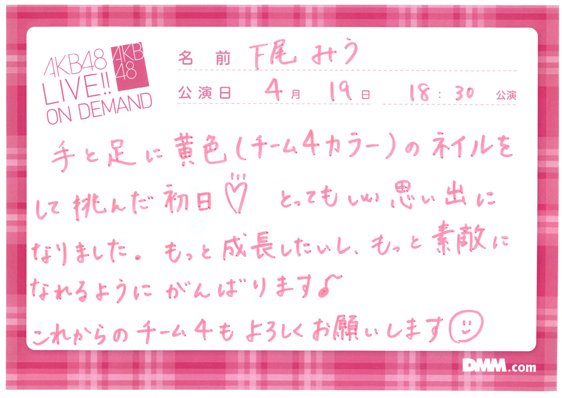 AKB48
LIVE!!
ON DEMAND
AKB
48
名前 下尾みう
公演日 4月 19日 18:30 公演
手と足に黄色(チーム4カラー)のネイルを
して挑んだ初日♡ とってもいい思い出に
なりました。もっと成長したいし、もっと素敵に
なれるようにがんばります♪
これからのチーム4もよろしくお願いします☺
DMM.com